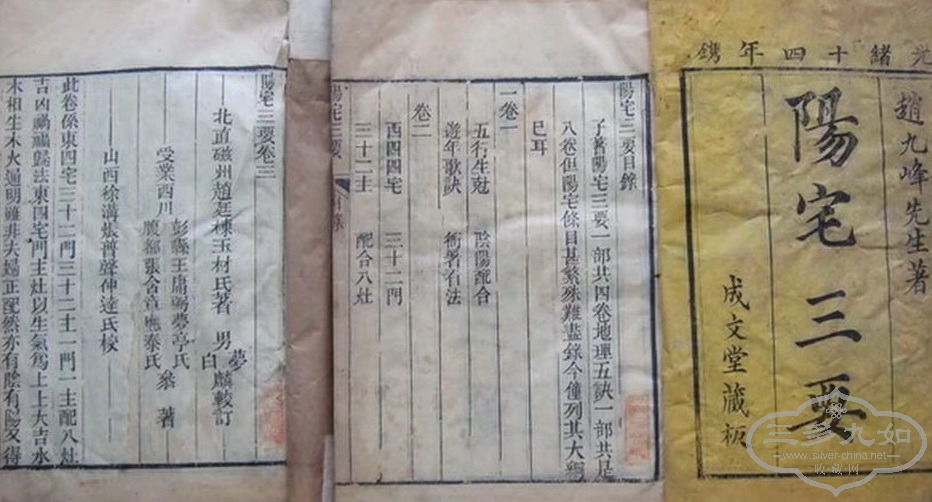 光緒十四年鐫
趙九峰先生著
陽宅三要
成文堂藏板
陽宅三要目錄
予著陽宅三要一部共四卷地理五訣一部共足
八卷但陽宅條目甚繁殊難盡錄今僅列其大綱
已耳
一卷一
五行生尅 陰陽配合
遊年歌訣 衙署名法
卷二
西四四宅 三十二門
三十二主 配合八灶
陽宅三要 目錄
陽宅三要卷三
北直磁州趙廷棟玉材氏著 男夢白麟較訂
受業西川彭縣王庸弼夢亭氏
張含章應奉氏 叅著
山西徐溝張普聲伸達氏校
此卷係東四宅三十二門三十二主一門一主配八灶
吉凶禍福歸法東四宅門主灶以生氣為上上大吉水
木相生木火通明雖非夫婦正配然亦有陰有陽又得
三多九如
www.silver-china.net
收藏網